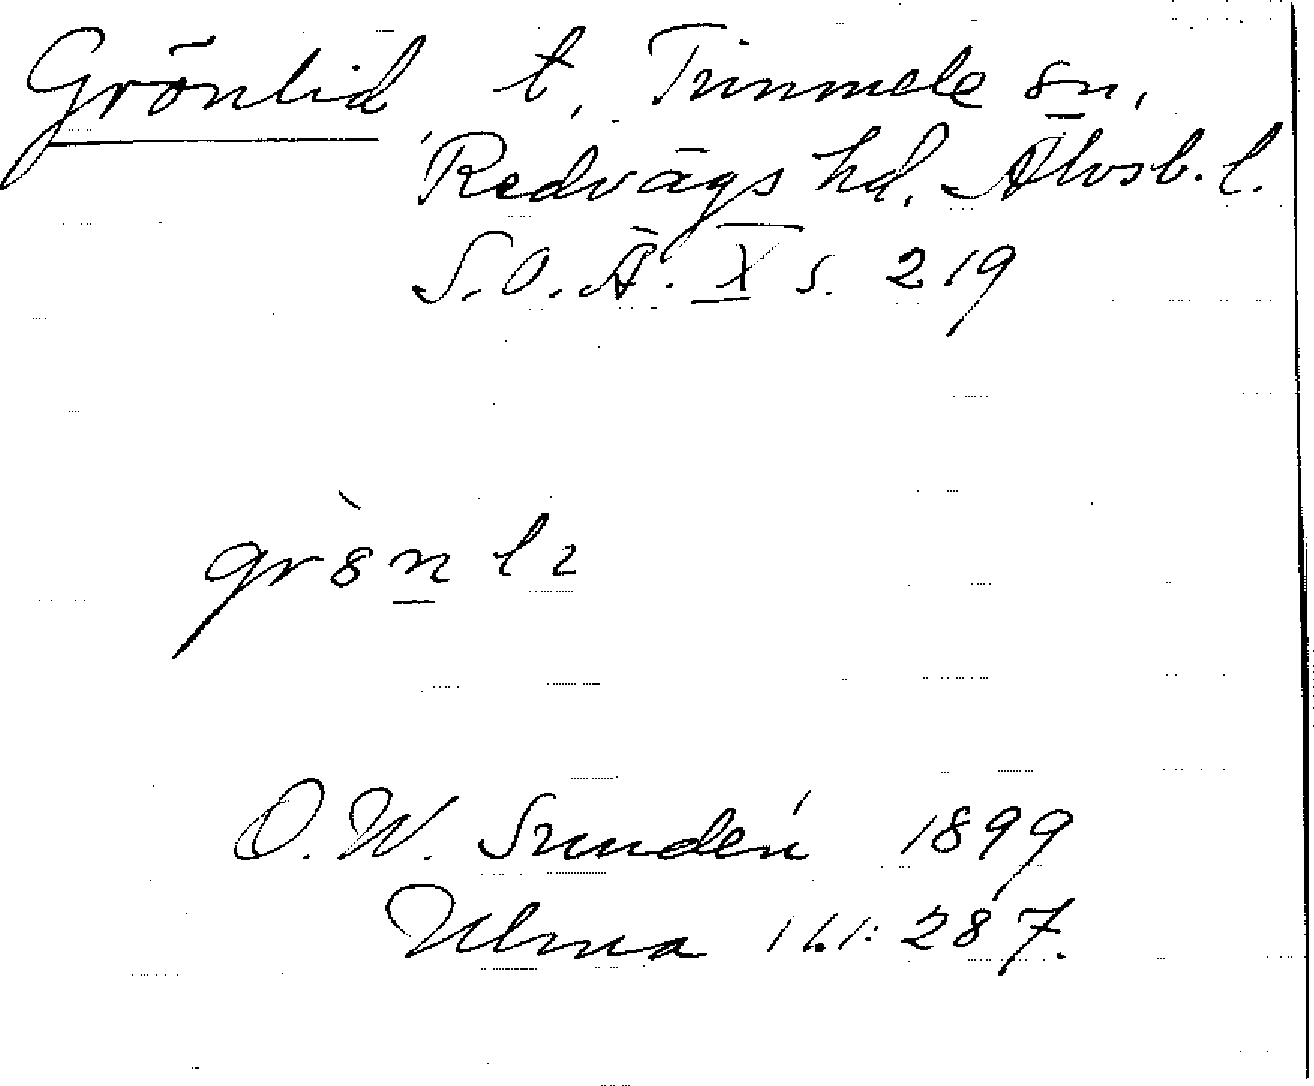 Grönlid t, Timmele sn,
Redvägs hd. Älvsb. l.
S.O.Ä. X s. 219
grön li
O.W. Sundén 1899
Ulma 161:287.